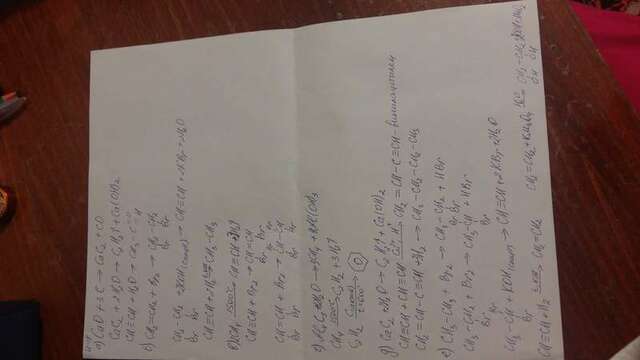 а) CaO + 3C → CaC2 + CO
CaC2 + 2H2O → C2H2↑ + Ca(OH)2
CH≡CH + H2O → CH3-C=O H
б) CH2=CH2 + Br2 → CH2-CH2
Br Br
CH2-CH2 + 2KOH → CH≡CH + 2KBr + 2H2O
Br Br
CH≡CH + 2H2 → CH3-CH3
в) 2CH4 1500°C → CH≡CH + 3H2↑
CH≡CH + Br2 → CH=CH
Br Br
Br Br
CH=CH + Br2 → CH-CH
Br Br Br Br
г) Al4C3 + H2O → CH4 + Al(OH)3
CH4 1500°C → C2H2 + 3H2↑
C2H2 →
д) CaC2 + H2O → C2H2↑ + Ca(OH)2
CH≡CH + CH≡CH → CH2=CH-C≡CH - винилацетилен
CH2=CH-C≡CH + 3H2 → CH3-CH2-CH2-CH3
е) CH3-CH3 + Br2 → CH3-CH2 + HBr
Br
CH3-CH2 + Br2 → CH3-CH + HBr
Br Br
Br
CH3-CH + KOH → CH≡CH + 2KBr + 2H2O
Br
CH≡CH + H2 → CH2=CH2 CH2=CH2 + KMnO4 H2O → CH2-CH2
OH OH